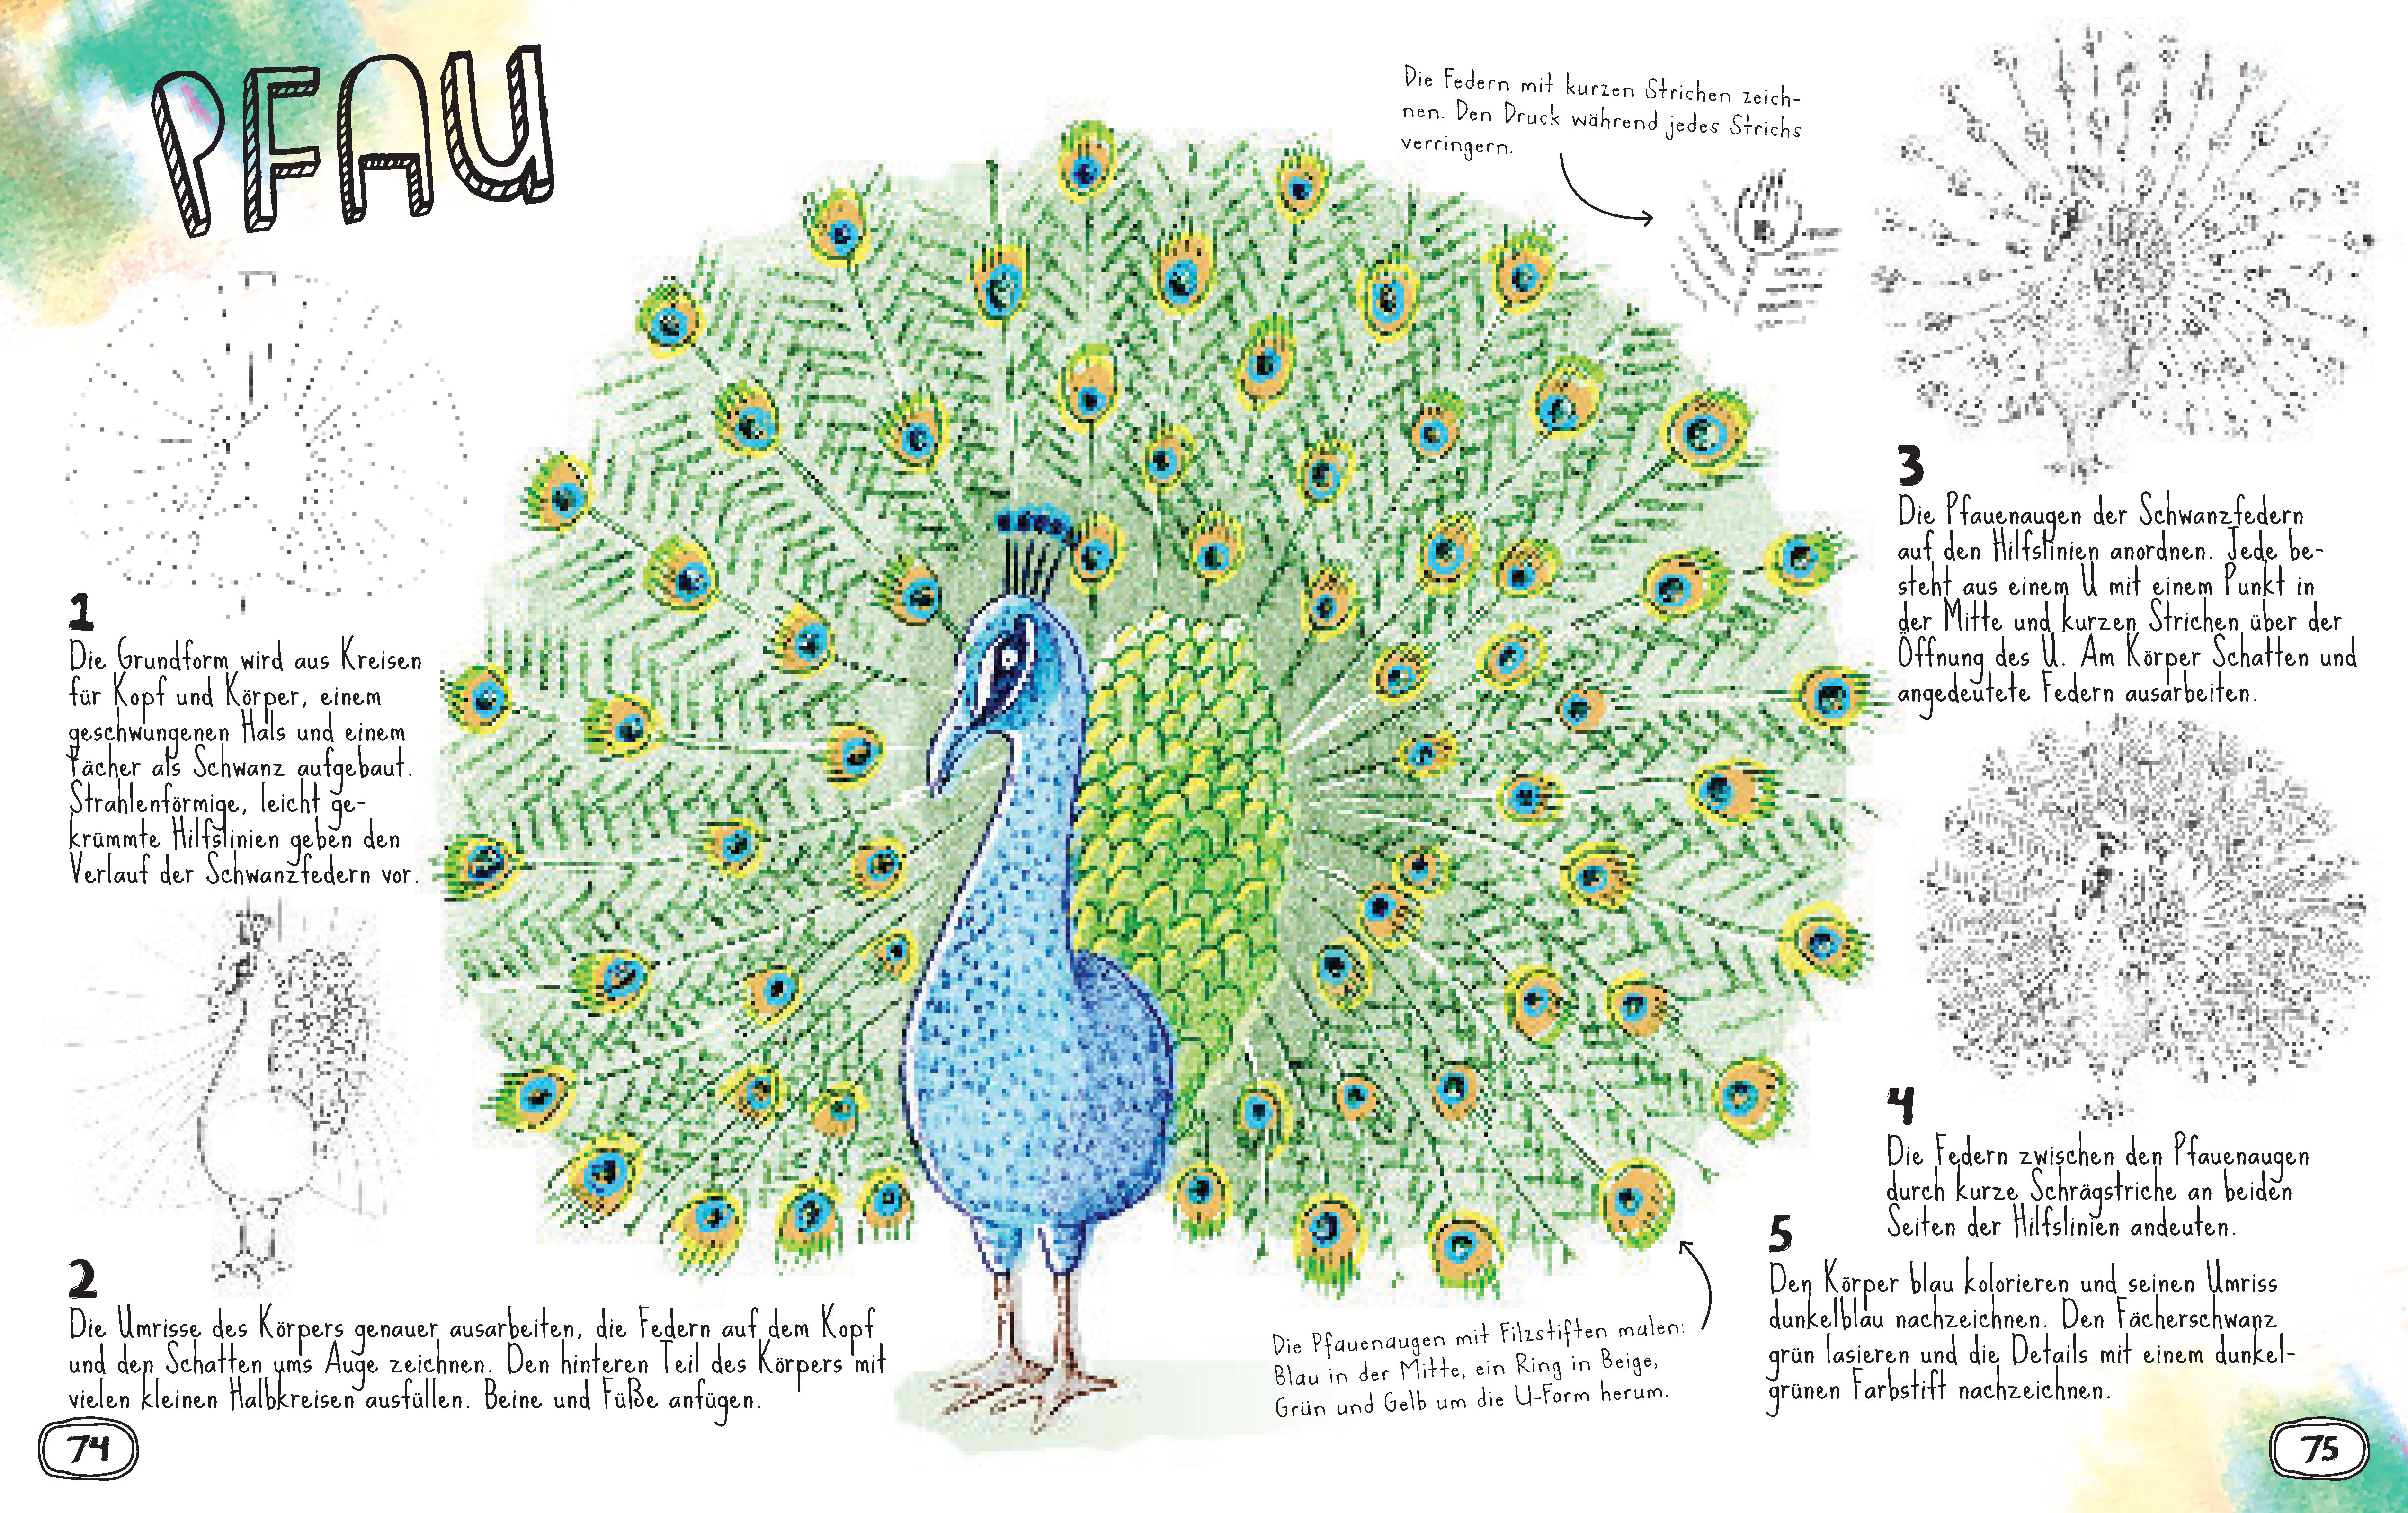 PFAU
1
Die Grundform wird aus Kreisen
für Kopf und Körper, einem
geschwungenen Hals und einem
Fächer als Schwanz aufgebaut.
Strahlenförmige, leicht ge-
krümmte Hilfslinien geben den
Verlauf der Schwanzfedern vor.
2
Die Umrisse des Körpers genauer ausarbeiten, die Federn auf dem Kopf
und den Schatten ums Auge zeichnen. Den hinteren Teil des Körpers mit
vielen kleinen Halbkreisen ausfüllen. Beine und Füße anfügen.
74
Die Federn mit kurzen Strichen zeich-
nen. Den Druck während jedes Strichs
verringern.
3
Die Pfauenaugen der Schwanzfedern
auf den Hilfslinien anordnen. Jede be-
steht aus einem U mit einem Punkt in
der Mitte und kurzen Strichen über der
Öffnung des U. Am Körper Schatten und
angedeutete Federn ausarbeiten.
4
Die Federn zwischen den Pfauenaugen
durch kurze Schrägstriche an beiden
Seiten der Hilfslinien andeuten.
5
Den Körper blau kolorieren und seinen Umriss
dunkelblau nachzeichnen. Den Fächerschwanz
grün lasieren und die Details mit einem dunkel-
grünen Farbstift nachzeichnen.
Die Pfauenaugen mit Filzstiften malen:
Blau in der Mitte, ein Ring in Beige,
Grün und Gelb um die U-Form herum.
75